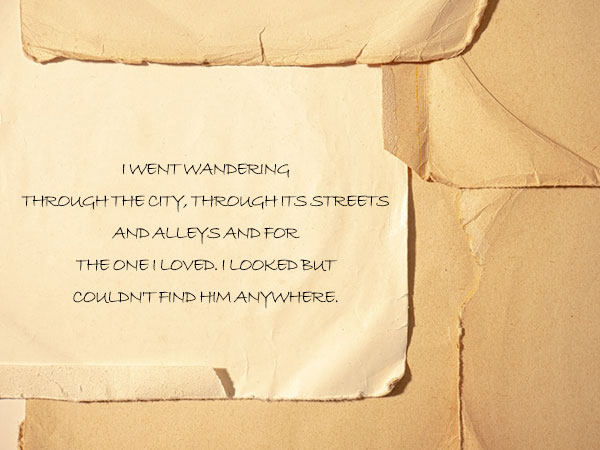 I WENT WANDERING
THROUGH THE CITY, THROUGH ITS STREETS
AND ALLEYS AND FOR
THE ONE I LOVED. I LOOKED BUT
COULDN'T FIND HIM ANYWHERE.